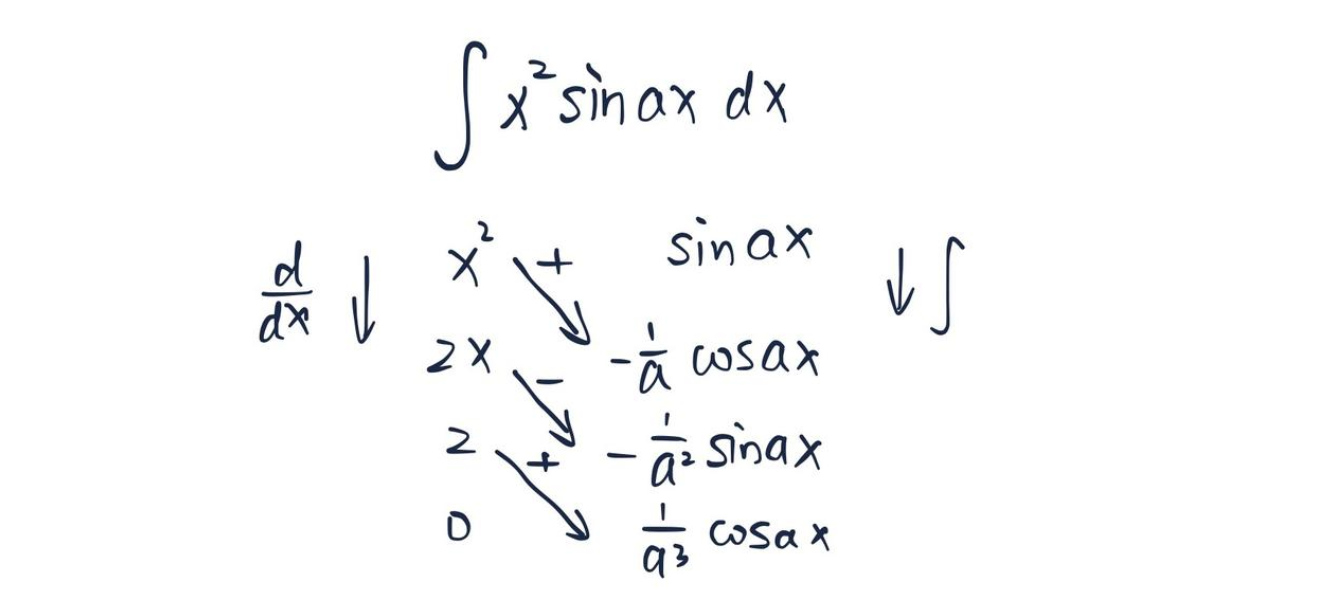 ∫ x² sin ax dx
d/dx ↓ x² + sin ax ↓ ∫
2x − -1/a cos ax
2 + -1/a² sin ax
0 1/a³ cos ax